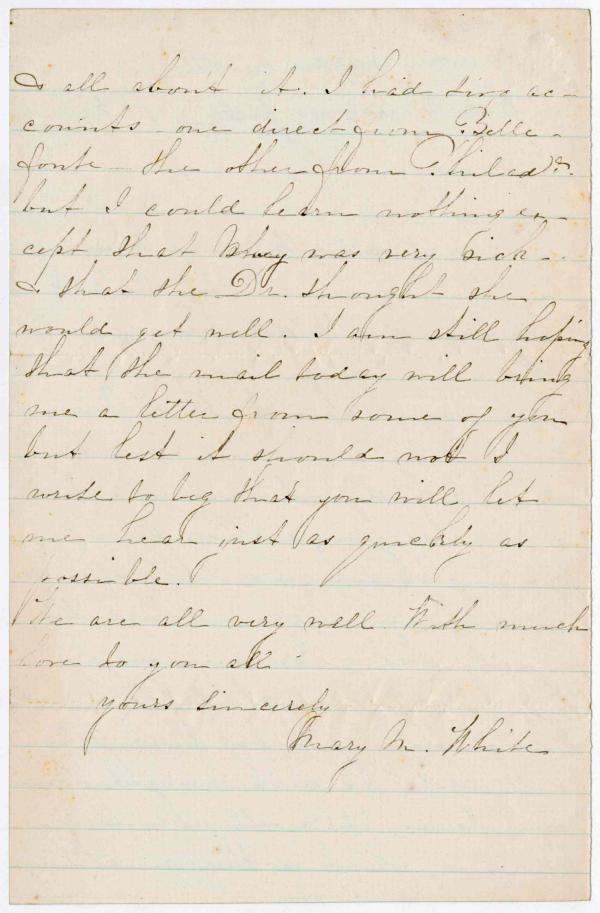 & all about it. I had two ac-
counts - one direct from Belle-
fonte - the other from Philada.
but I could learn nothing ex-
cept that was very sick -
& that the Dr. thought she
would get well. I am still hoping
that the mail today will bring
me a letter from some of you
but lest it should not I
write to beg that you will let
me hear just as quickly as
possible.
We are all very well. With much
love to you all -
yours sincerely
Mary M. White